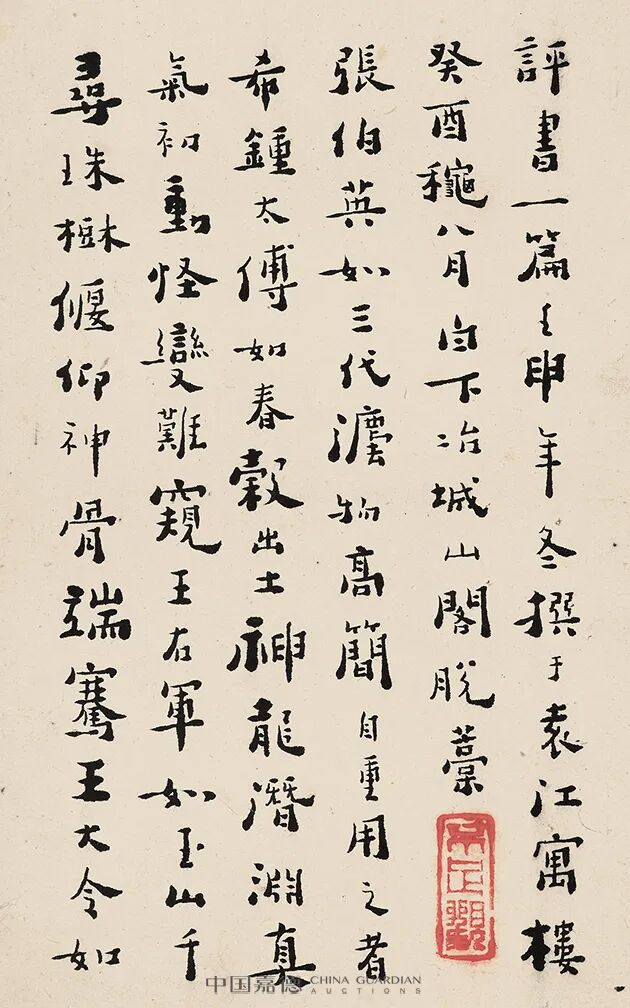 評書一篇壬申年冬撰于袁江寓樓
癸酉龝八月白下冶城山閣脫藁
張伯英如三代灋物高簡自重用之者
希鍾太傅如春穀出土神龍潛淵真
氣初動怪變難窺王右軍如玉山千
尋珠樹偃仰神骨端騫王大令如
中国嘉德 CHINA GUARDIAN
AUCTIONS